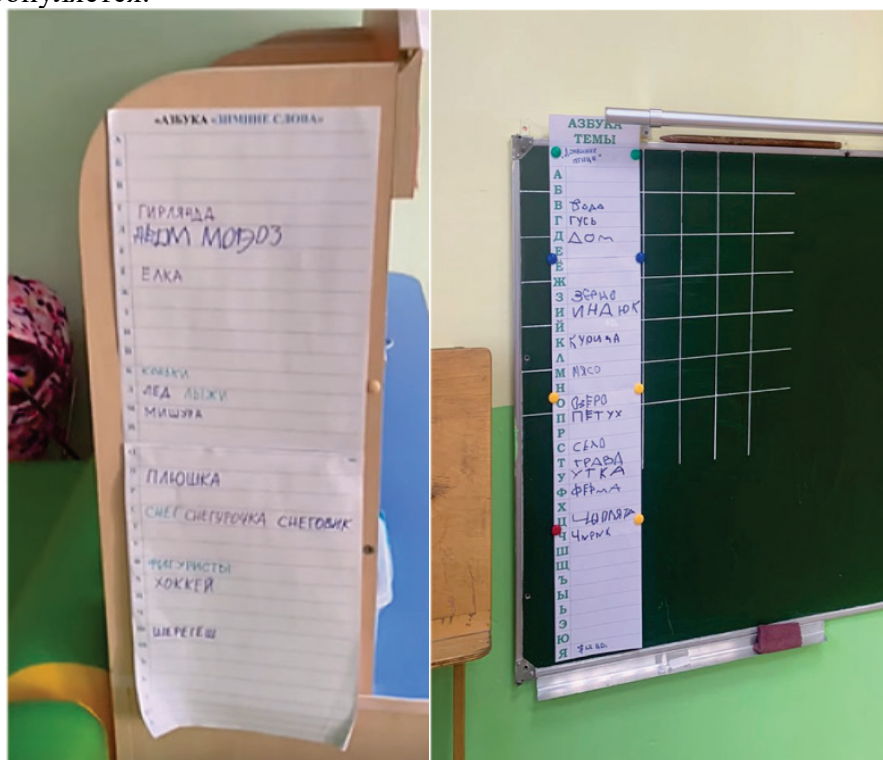 «АЗБУКА «ЗИМНИЕ СЛОВА»
ГИРЛЯНДА
МОРОЗ
ЕЛКА
КОНЬКИ
ЛЕД ЛЫЖИ
МИШУРА
ПЛЮШКА
СНЕГ СНЕГУРОЧКА СНЕГОВИК
ФИГУРИСТЫ
ХОККЕЙ
ШЕРЕГЕШ
АЗБУКА
ТЕМЫ
"Домашние
птицы"
А
Б
В Вода
Г ГУСЬ
Д ДОМ
Е
Ё
Ж
З ЗЕРНО
И ИНДЮК
Й
К КУРИЦА
Л
М МЯСО
Н
О ОЗЕРО
П ПЕТУХ
Р
С СЕЛО
Т ТРАВА
У УТКА
Ф ФЕРМА
Х
Ц ЦЫПЛЯТА
Ч ЧИРИК
Ш
Щ
Ъ
Ы
Ь
Э
Ю
Я яйцо